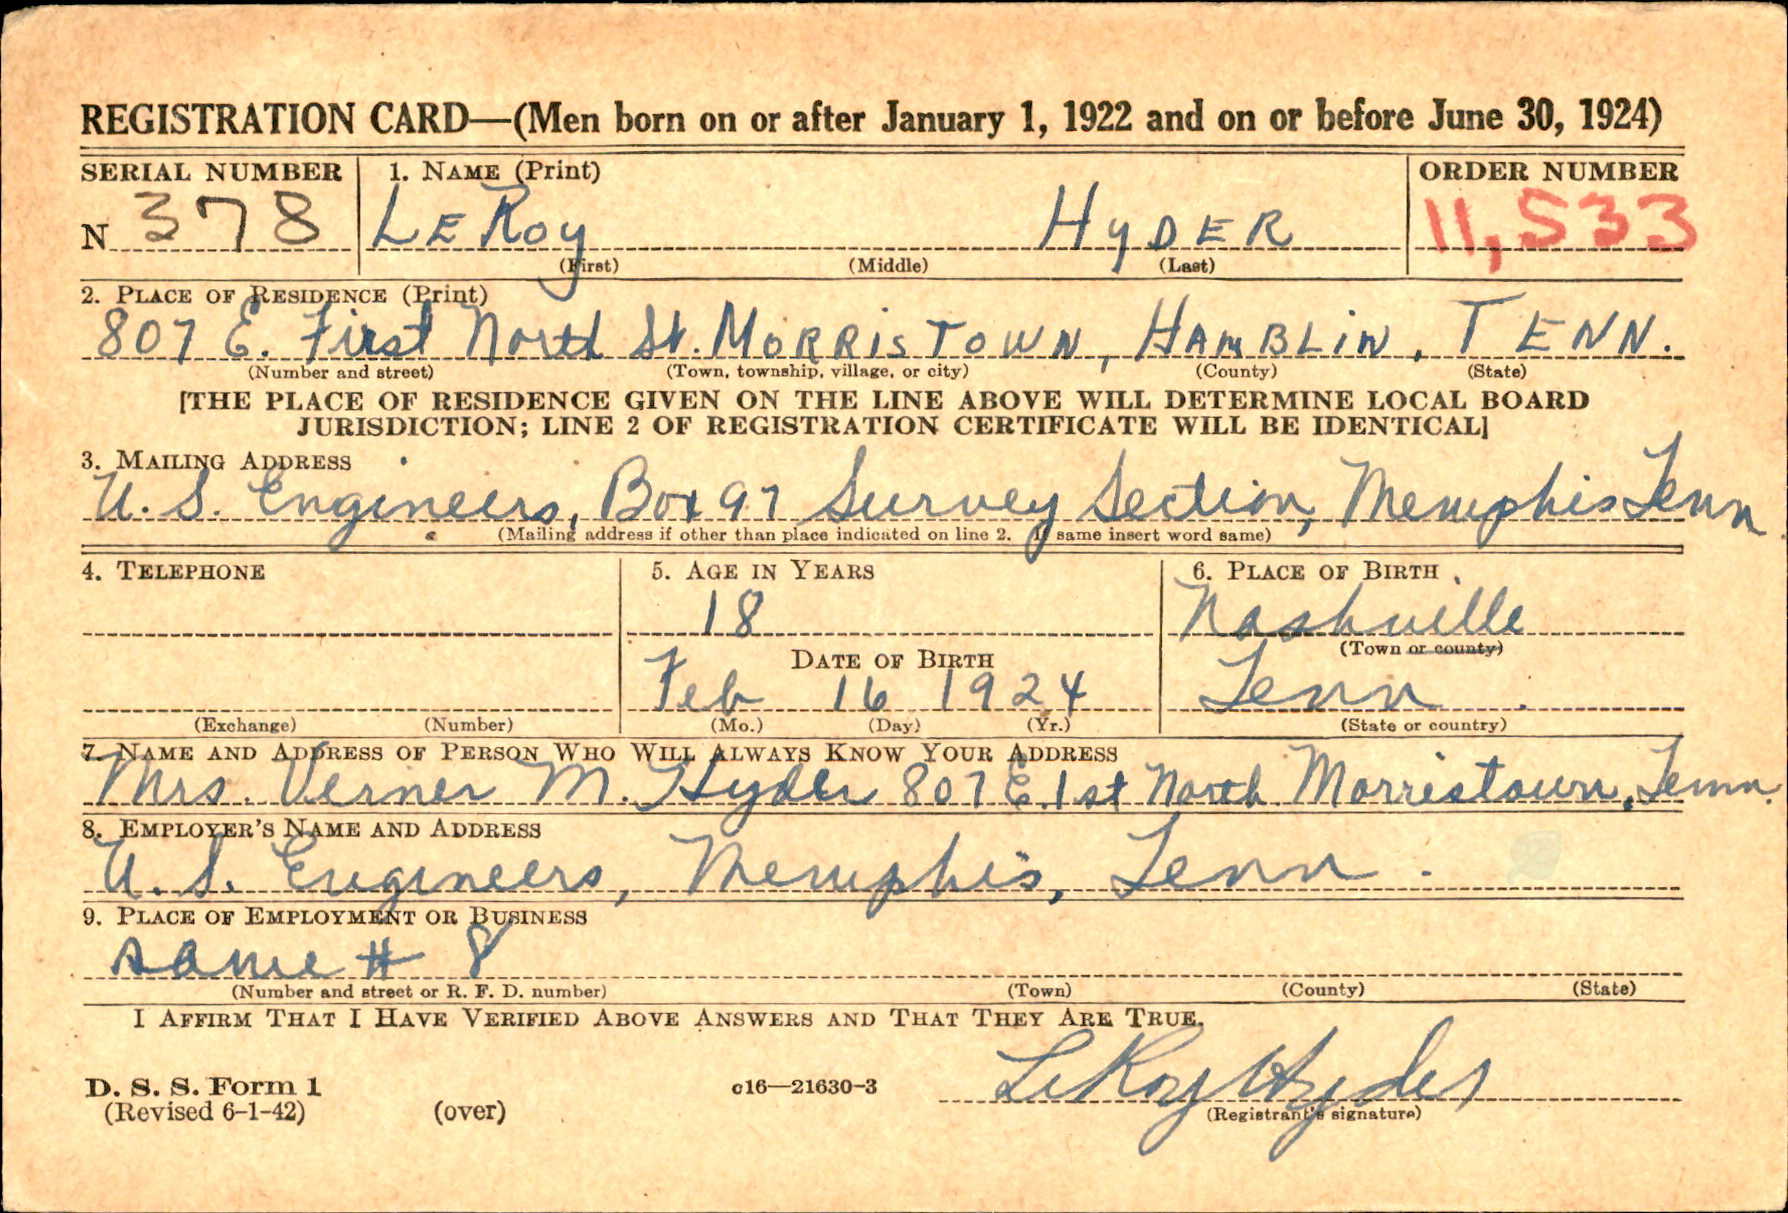 REGISTRATION CARD—(Men born on or after January 1, 1922 and on or before June 30, 1924)
SERIAL NUMBER 1. NAME (Print) ORDER NUMBER
N 378 LEROY HYDER 11,533
(First) (Middle) (Last)
2. PLACE OF RESIDENCE (Print)
807 E. First North St. MORRISTOWN, HAMBLIN, TENN.
(Number and street) (Town, township, village, or city) (County) (State)
[THE PLACE OF RESIDENCE GIVEN ON THE LINE ABOVE WILL DETERMINE LOCAL BOARD
JURISDICTION; LINE 2 OF REGISTRATION CERTIFICATE WILL BE IDENTICAL]
3. MAILING ADDRESS
U. S. Engineers, Box 97 Survey Section, Memphis Tenn
(Mailing address if other than place indicated on line 2. If same insert word same)
4. TELEPHONE 5. AGE IN YEARS 6. PLACE OF BIRTH
18 Nashville
(Town or county)
DATE OF BIRTH
Feb 16 1924 Tenn.
(Exchange) (Number) (Mo.) (Day) (Yr.) (State or country)
7. NAME AND ADDRESS OF PERSON WHO WILL ALWAYS KNOW YOUR ADDRESS
Mrs. Verner M. Hyder 807 E. 1st North Morristown, Tenn.
8. EMPLOYER'S NAME AND ADDRESS
U. S. Engineers, Memphis, Tenn.
9. PLACE OF EMPLOYMENT OR BUSINESS
same # 8
(Number and street or R. F. D. number) (Town) (County) (State)
I AFFIRM THAT I HAVE VERIFIED ABOVE ANSWERS AND THAT THEY ARE TRUE.
LeRoy Hyder
D. S. S. Form 1 c16—21630-3
(Revised 6-1-42) (over) (Registrant's signature)